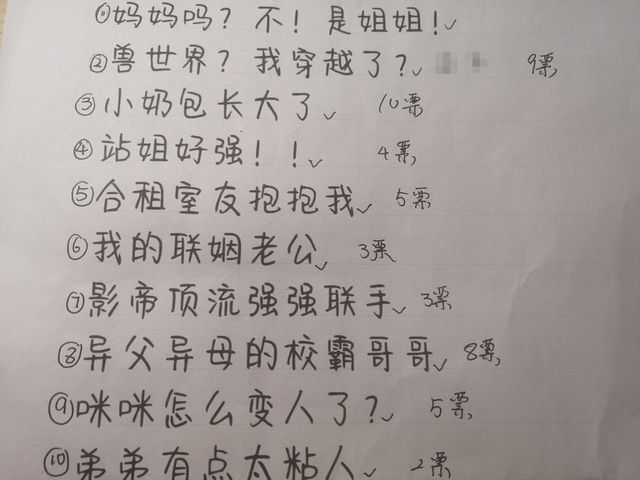 ①妈妈吗？不！是姐姐！✓
②兽世界？我穿越了？✓ 9票
③小奶包长大了✓ 10票
④站姐好强！！✓ 4票
⑤合租室友抱抱我✓ 5票
⑥我的联姻老公✓ 3票
⑦影帝顶流强强联手✓ 3票
⑧异父异母的校霸哥哥✓ 8票
⑨咪咪怎么变人了？✓ 5票
⑩弟弟有点太粘人✓ 2票